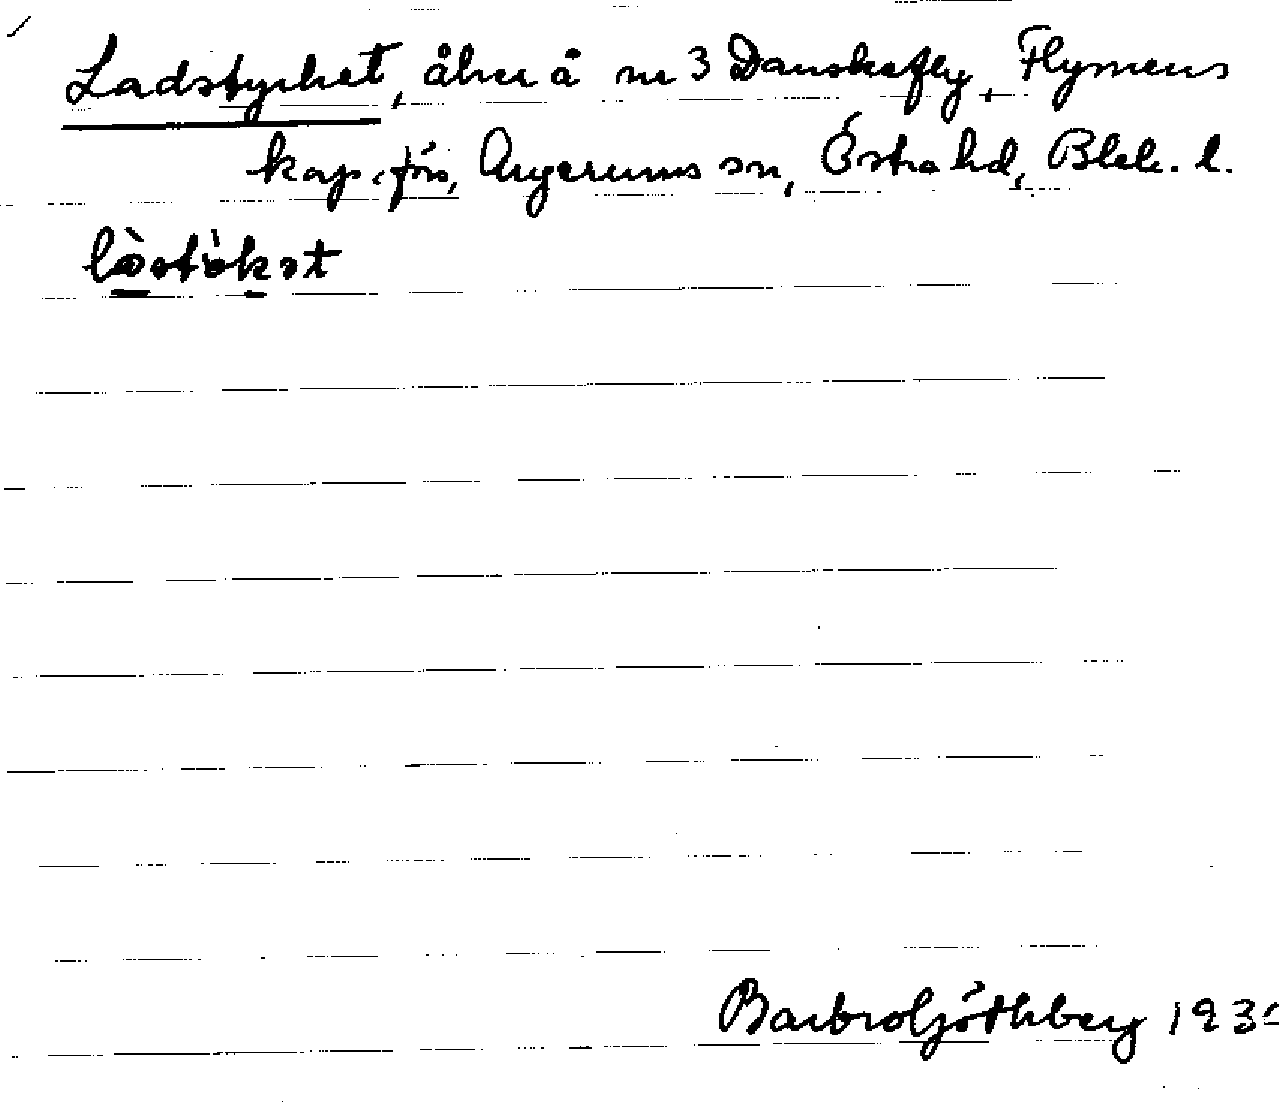 Ladstycket, åker å nr 3 Danskafly, Flymens
kap.förs, Augerums sn, Östra hd, Blek. l.
Barbro Göthberg 193